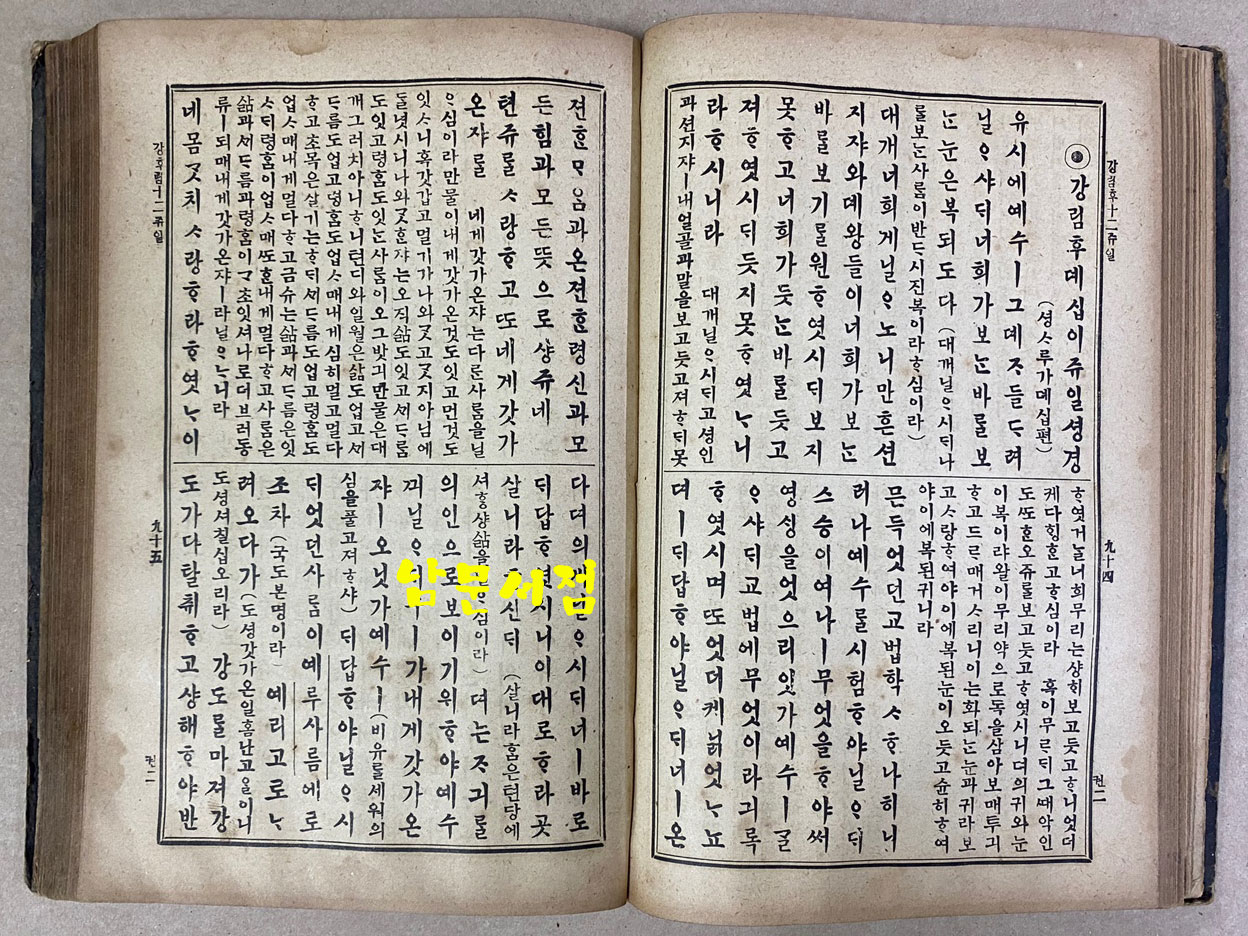 강림후十二쥬일
◉ 강림후뎨십이쥬일셩경
(셩ᄉᆞ루가뎨십편)
유시에예수ㅣ그뎨ᄌᆞ들ᄃᆞ려
닐ᄋᆞ샤ᄃᆡ너희가보ᄂᆞᆫ바ᄅᆞᆯ보
ᄂᆞᆫ눈은복되도다 (대개닐ᄋᆞ시ᄃᆡ나
ᄅᆞᆯ보ᄂᆞᆫ사ᄅᆞᆷ이반ᄃᆞ시진복이라ᄒᆞ심이라)
대개너희게닐ᄋᆞ노니만흔션
지쟈와뎨왕들이너희가보ᄂᆞᆫ
바ᄅᆞᆯ보기ᄅᆞᆯ원ᄒᆞ엿시ᄃᆡ보지
못ᄒᆞ고너희가듯ᄂᆞᆫ바ᄅᆞᆯ듯고
져ᄒᆞ엿시ᄃᆡ듯지못ᄒᆞ엿ᄂᆞ니
라ᄒᆞ시니라 대개닐ᄋᆞ시ᄃᆡ고셩인
과션지쟈ㅣ내얼골과말을보고듯고져ᄒᆞᄃᆡ못
ᄒᆞ엿거ᄂᆞᆯ너희무리는샹회보고듯고ᄒᆞ니엇더
케다ᄒᆡᆼᄒᆞᆫ고ᄒᆞ심이라 혹이무ᄅᆞᄃᆡ그ᄯᅢ악인
도ᄯᅩᄒᆞᆫ오쥬ᄅᆞᆯ보고듯고ᄒᆞ엿시니뎌의귀와눈
이복이랴왈이무리약으로독을삼아보매투긔
ᄒᆞ고드ᄅᆞ매거스리니이는화되ᄂᆞᆫ눈과귀라보
고ᄉᆞ랑ᄒᆞ여야이에복된눈이오듯고슌히ᄒᆞ여
야이에복된귀니라
믄득엇던교법학ᄉᆞᄒᆞ나히니
러나예수ᄅᆞᆯ시험ᄒᆞ야닐ᄋᆞᄃᆡ
스승이여나ㅣ무엇을ᄒᆞ야써
영ᄉᆡᆼ을엇으리잇가예수ㅣᄀᆞᆯ
ᄋᆞ샤ᄃᆡ교법에무엇이라긔록
ᄒᆞ엿시며ᄯᅩ엇더케닑엇ᄂᆞ뇨
뎌ㅣᄃᆡ답ᄒᆞ야닐ᄋᆞᄃᆡ너ㅣ온
九十四
권二
젼ᄒᆞᆫᄆᆞᄋᆞᆷ과온젼ᄒᆞᆫ령신과모
든힘과모든뜻으로샹쥬네
텬쥬ᄅᆞᆯᄉᆞ랑ᄒᆞ고ᄯᅩ네게갓가
온쟈ᄅᆞᆯ 네게갓가온쟈는다른사ᄅᆞᆷ을닐
ᄋᆞ심이라만물이내게갓가온것도잇고먼것도
잇ᄉᆞ니혹갓갑고멀기가나와ᄀᆞᆺ고ᄀᆞᆺ지아님에
ᄃᆞᆯ녓시니나와ᄀᆞᆺᄒᆞᆫ쟈는오직삶도잇고ᄭᆡᄃᆞᄅᆞᆷ
도잇고령혼도잇ᄂᆞᆫ사ᄅᆞᆷ이오그밧긔만물은대
개그러치아니ᄒᆞ니텬디와일월은삶도업고ᄭᆡ
ᄃᆞᄅᆞᆷ도업고령혼도업ᄉᆞ매내게심히멀고멀다
ᄒᆞ고초목은살기는ᄒᆞᄃᆡᄭᆡᄃᆞᄅᆞᆷ도업고령혼도
업ᄉᆞ매내게멀다ᄒᆞ고금슈는삶과ᄭᆡᄃᆞᄅᆞᆷ은잇
ᄉᆞᄃᆡ령혼이업ᄉᆞ매ᄯᅩᄒᆞᆫ내게멀다ᄒᆞ고사ᄅᆞᆷ은
삶과ᄭᆡᄃᆞᄅᆞᆷ과령혼이ᄀᆞ초잇셔나로더브러동
류ㅣ되매내게갓가온쟈ㅣ라닐ᄋᆞᄂᆞ니라
네몸ᄀᆞᆺ치ᄉᆞ랑ᄒᆞ라ᄒᆞ엿ᄂᆞ이
다뎌의게닐ᄋᆞ시ᄃᆡ너ㅣ바로
ᄃᆡ답ᄒᆞ엿시니이대로ᄒᆞ라곳
살니라ᄒᆞ신ᄃᆡ (살니라ᄒᆞᆷ은텬당에
셔ᄒᆞᆼ샹삶을닐ᄋᆞ심이라) 뎌는ᄌᆞ긔ᄅᆞᆯ
의인으로보이기위ᄒᆞ야예수
ᄭᅴ닐ᄋᆞᄃᆡ가내게갓가온
쟈ㅣ오닛가예수ㅣ(비유ᄅᆞᆯ세워의
심을풀고져ᄒᆞ샤) ᄃᆡ답ᄒᆞ야닐ᄋᆞ시
ᄃᆡ엇던사ᄅᆞᆷ이예루사름에로
조차 (국도본명이라) 예리고로ᄂᆞ
려오다가 (도셩갓가온일홈난고을이니
도셩셔칠십오리라) 강도ᄅᆞᆯ마져강
도가다탈취ᄒᆞ고샹해ᄒᆞ야반
강후림十二쥬일
九十五
권二
남문서점